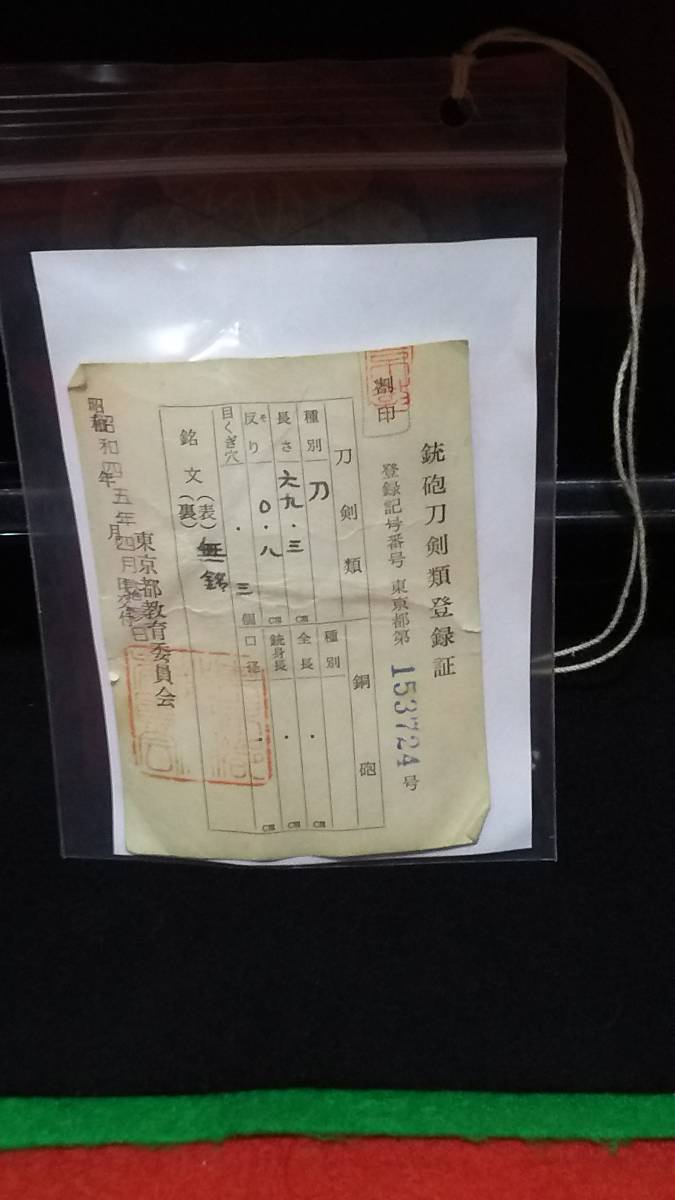 銃砲刀剣類登録証
割印
登録記号番号 東京都第 153724 号
刀剣類
種別 刀
長さ 六九.三 cm
反り そ 〇.八 cm
目くぎ穴 三 個
銘文 (表) 無銘
(裏)
銅砲
種別 . cm
全長 . cm
銃身長 . cm
口径
東京都教育委員会
昭和四五年四月
昭和 年 月 日